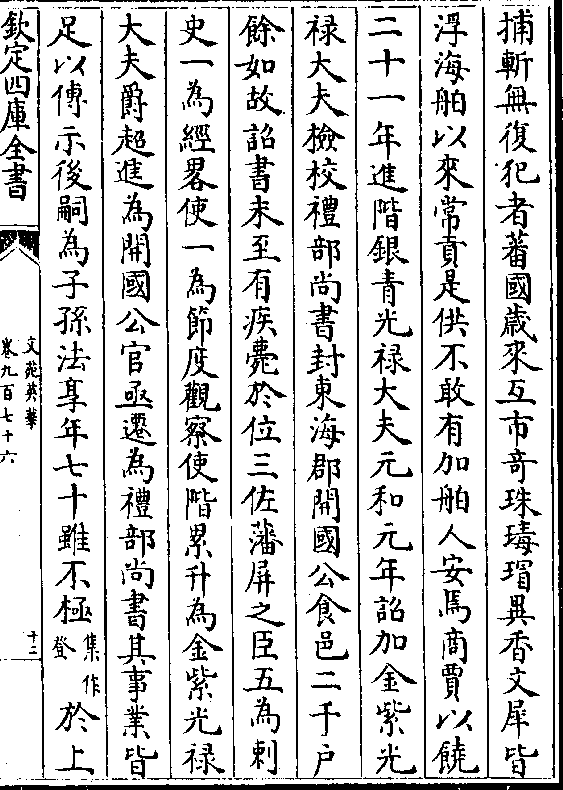 捕斬無復犯者蕃國歲來互市奇珠瑇瑁異香文犀皆
浮海舶以來常貢是供不敢有加舶人安焉商賈以饒
二十一年進階銀青光禄大夫元和元年詔加金紫光
禄大夫檢校禮部尚書封東海郡開國公食邑二千户
餘如故詔書未至有疾薨於位三佐藩屏之臣五為剌
史一為經畧使一為節度觀察使階累升為金紫光禄
大夫爵超進為開國公官亟遷為禮部尚書其事業皆
足以傳示後嗣為子孫法享年七十雖不極集作登於上
欽定四庫全書
文苑英華
卷九百七十六
十二